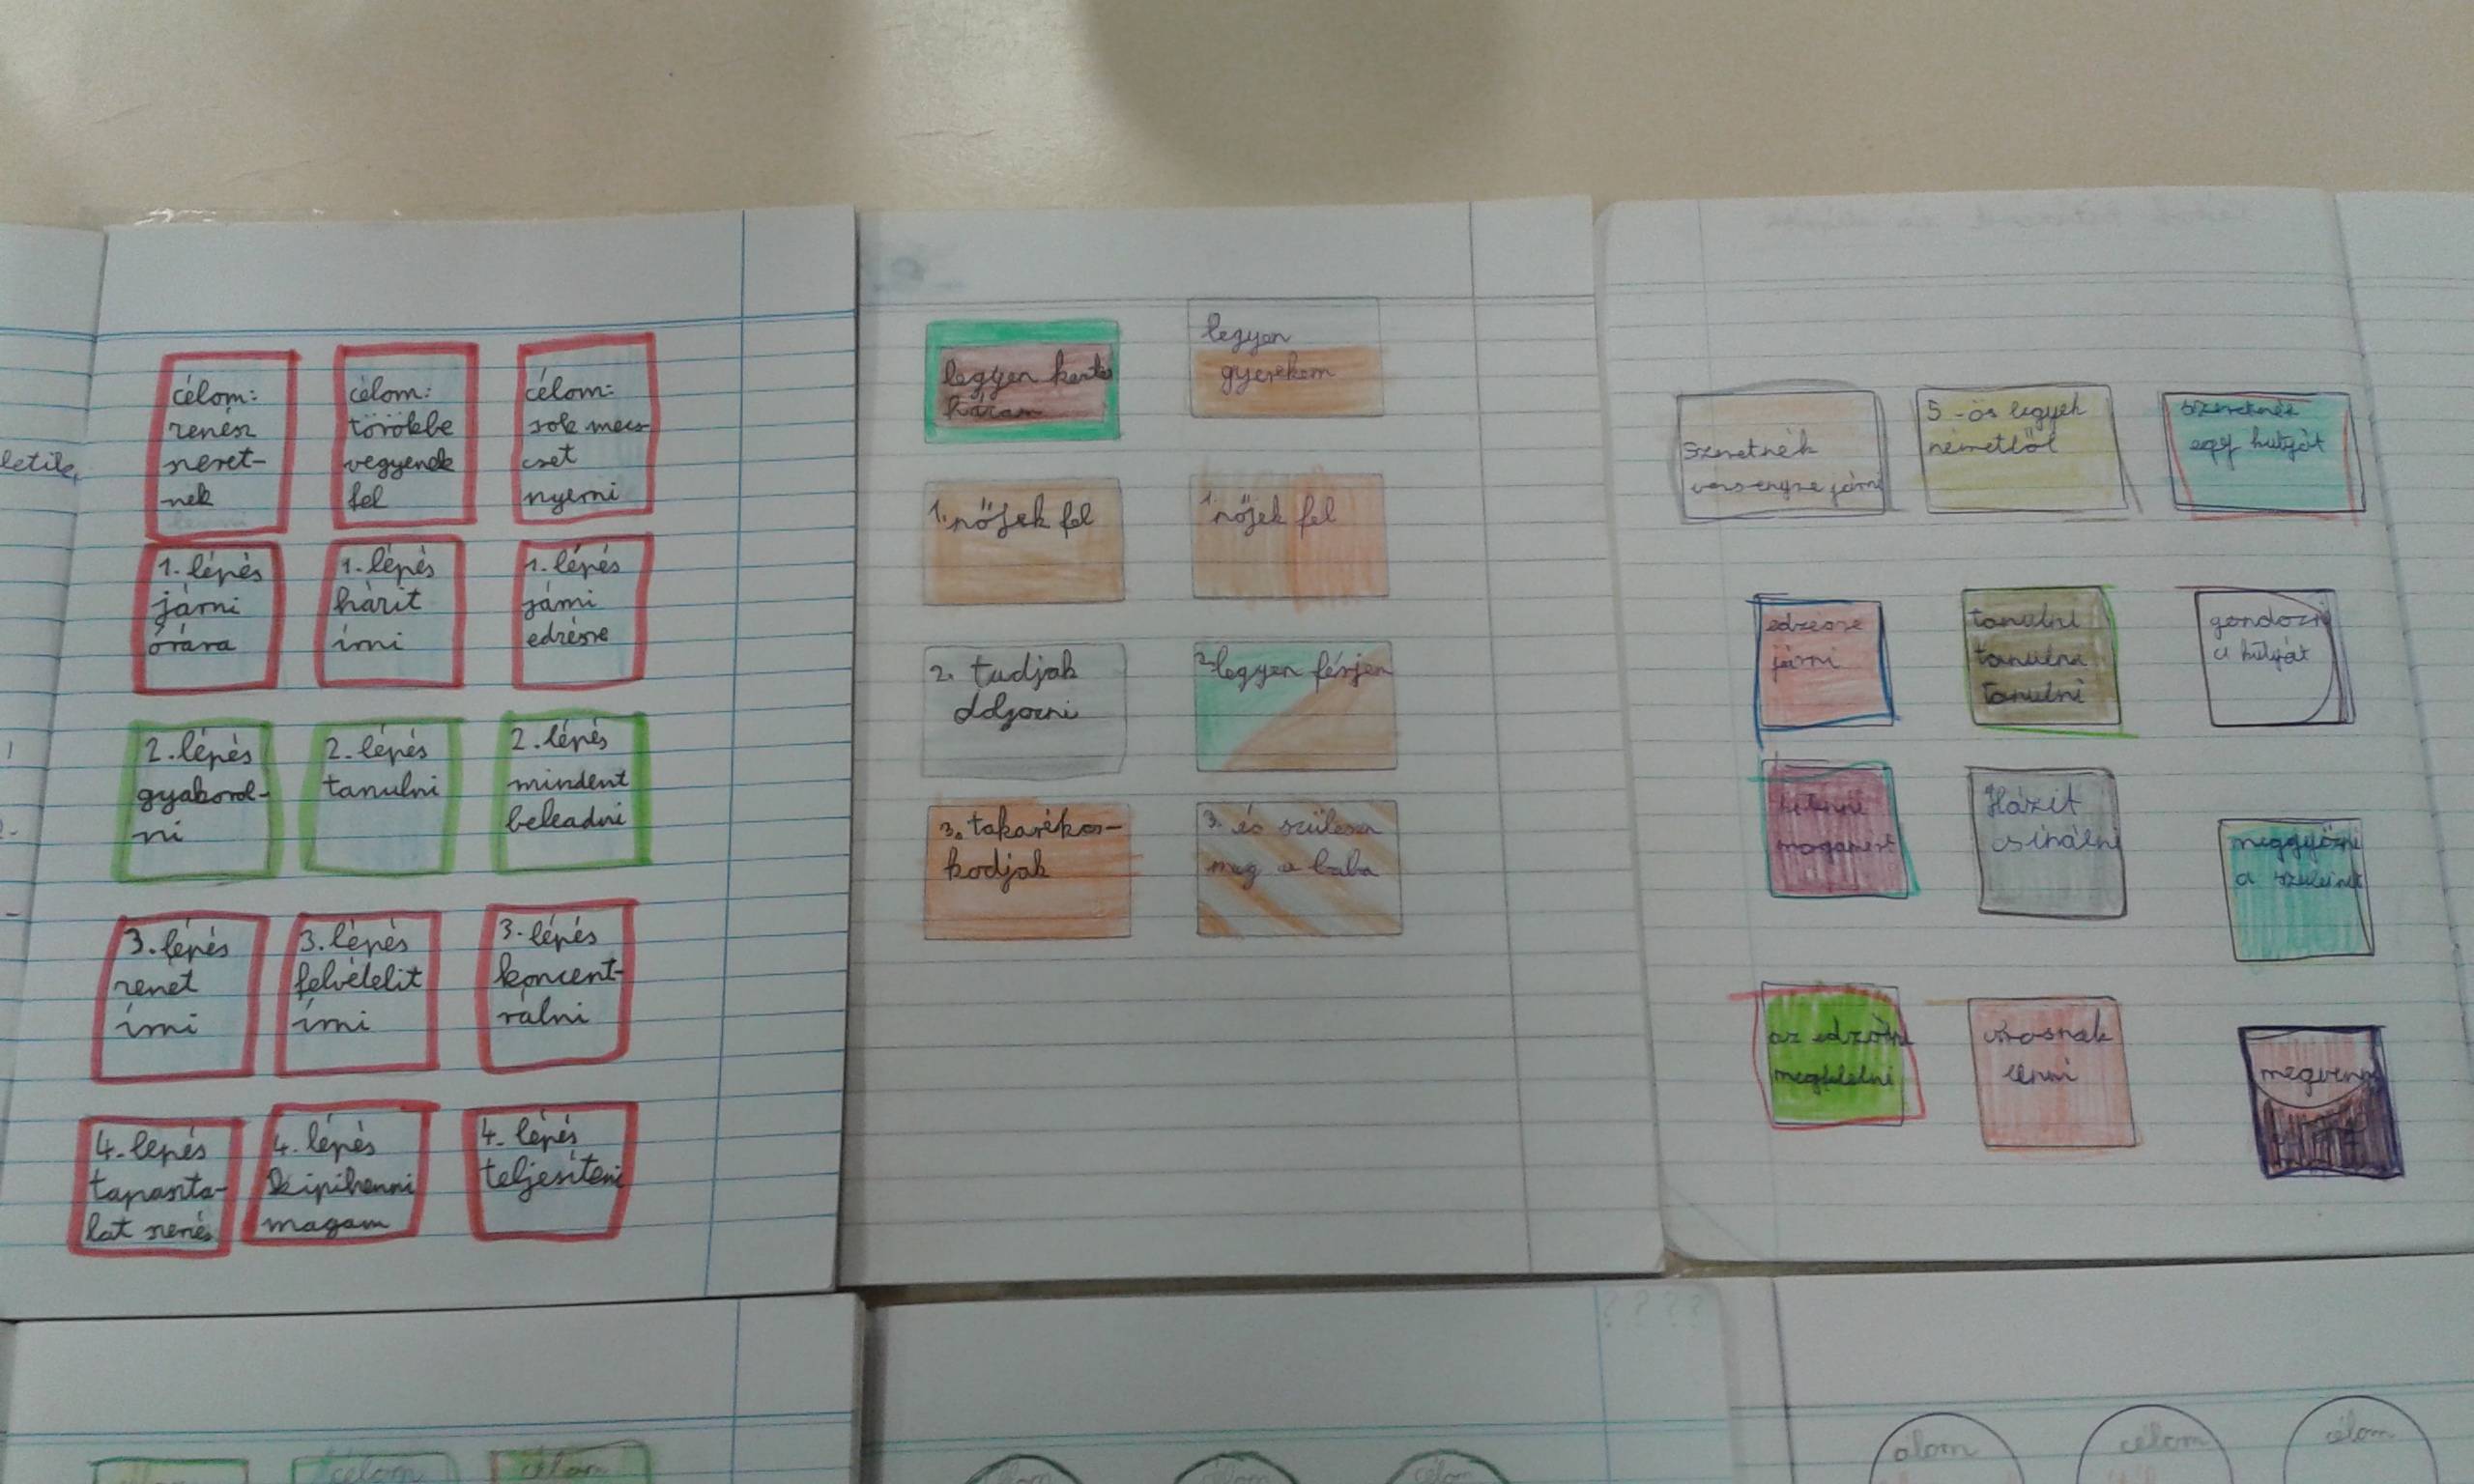 letile,
célom:
zenész
szeret-
nék
célom:
törökbe
vegyenek
fel
célom:
sok mecs-
cset
nyerni
1. lépés
járni
órára
1. lépés
házit
írni
1. lépés
járni
edzésre
2. lépés
gyakorol-
ni
2. lépés
tanulni
2. lépés
mindent
beleadni
3. lépés
zenét
írni
3. lépés
felvételit
írni
3. lépés
koncent-
rálni
4. lépés
tapaszta-
lat
4. lépés
kipihenni
magam
4. lépés
teljesíteni
legyen kertes
házam
legyen
gyerekem
1. nőjek fel
1. nőjek fel
2. tudjak
dolgozni
2. legyen férjem
3. takarékos-
kodjak
3. és szülessen
meg a baba
Szeretnék
versenyre járni
5-ös legyek
németből
szeretnék
egy kutyát
edzésre
járni
tanulni
tanulni
tanulni
gondozni
a kutyát
kitenni
magamért
Házit
csinálni
meggyőzni
a szüleimet
az edzőnek
megfelelni
okosnak
lenni
megvenni
célom
célom
célom
álom
célom
célom